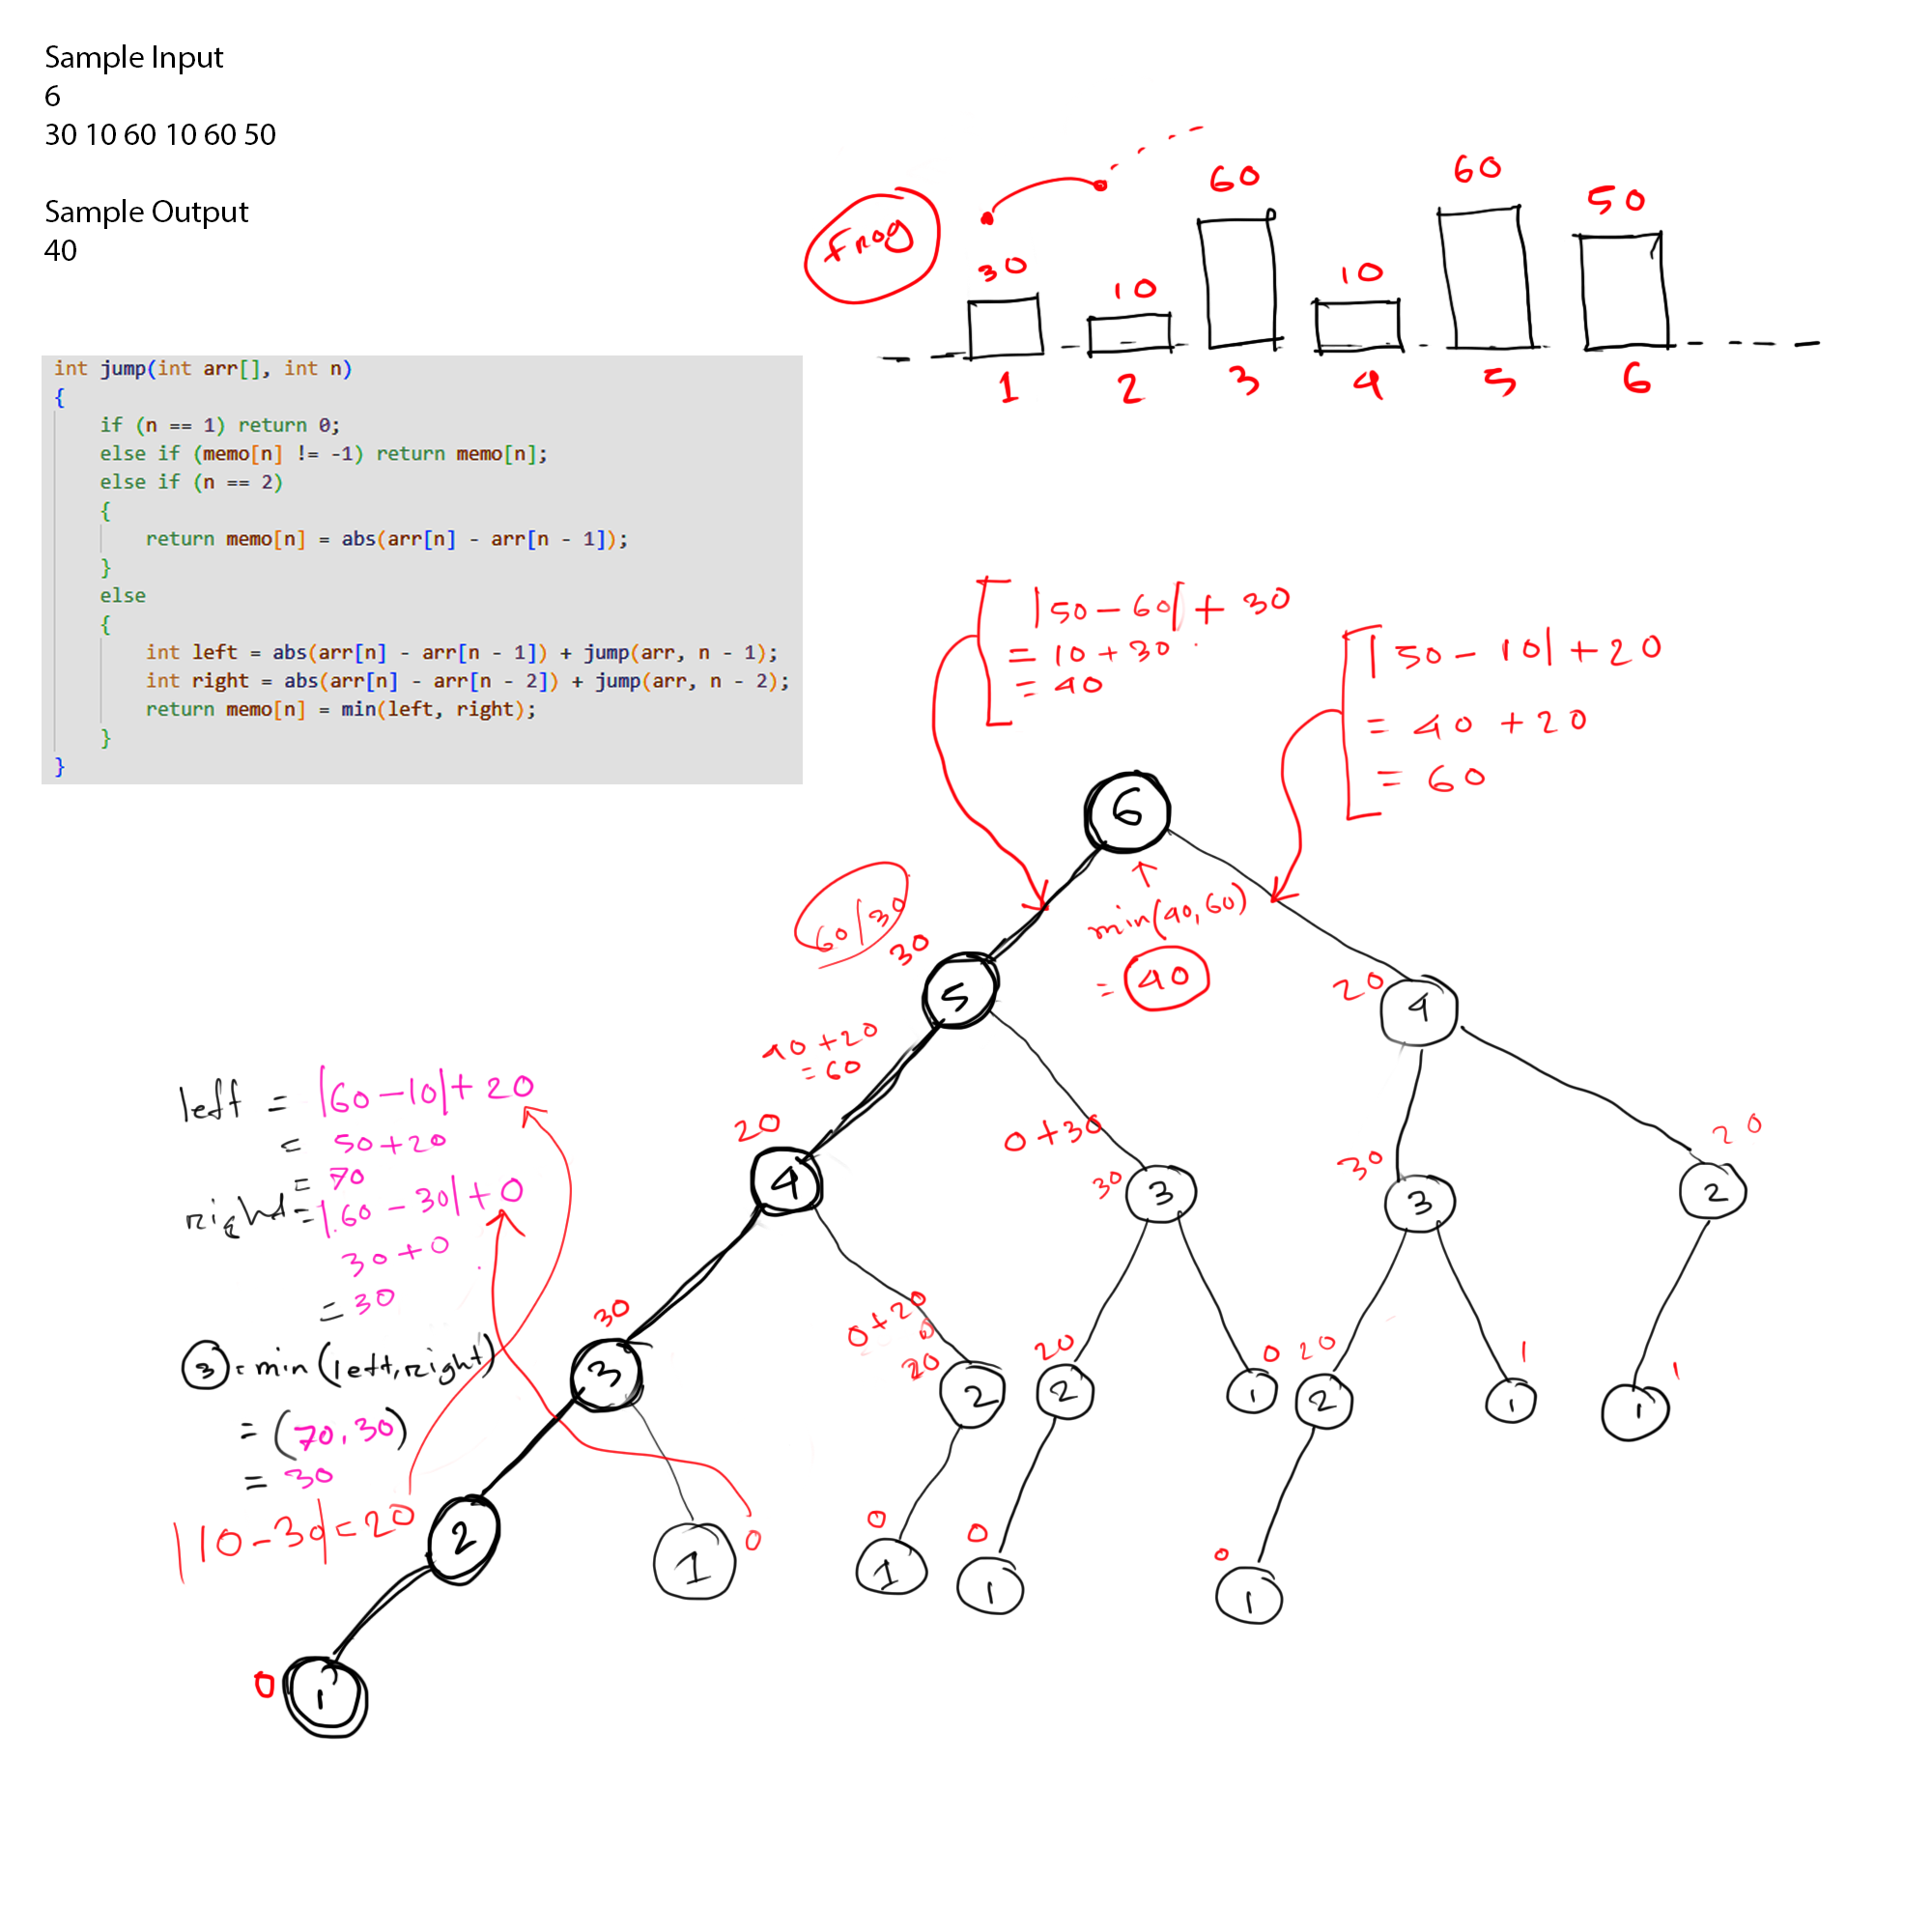 Sample Input
6
30 10 60 10 60 50
Sample Output
40
int jump(int arr[], int n)
{
if (n == 1) return 0;
else if (memo[n] != -1) return memo[n];
else if (n == 2)
{
return memo[n] = abs(arr[n] - arr[n - 1]);
}
else
{
int left = abs(arr[n] - arr[n - 1]) + jump(arr, n - 1);
int right = abs(arr[n] - arr[n - 2]) + jump(arr, n - 2);
return memo[n] = min(left, right);
}
}
Frog
30 10 60 10 60 50
1 2 3 4 5 6
|50-60| + 30
= 10 + 30
= 40
|50 - 10| + 20
= 40 + 20
= 60
6
min(40,60)
= 40
60/30
30
5
20
4
40+20
= 60
0+30
left = |60-10|+20
= 50+20
= 70
right = |60-30|+0
30+0
= 30
3 = min(left,right)
= (70,30)
= 30
|10-30|=20
20
4
30
3
30
3
20
2
30
3
0+20
0
20
2
20
2
0
1
20
2
1
1
1
1
2
1
0
0
1
0
1
0
1
0
1